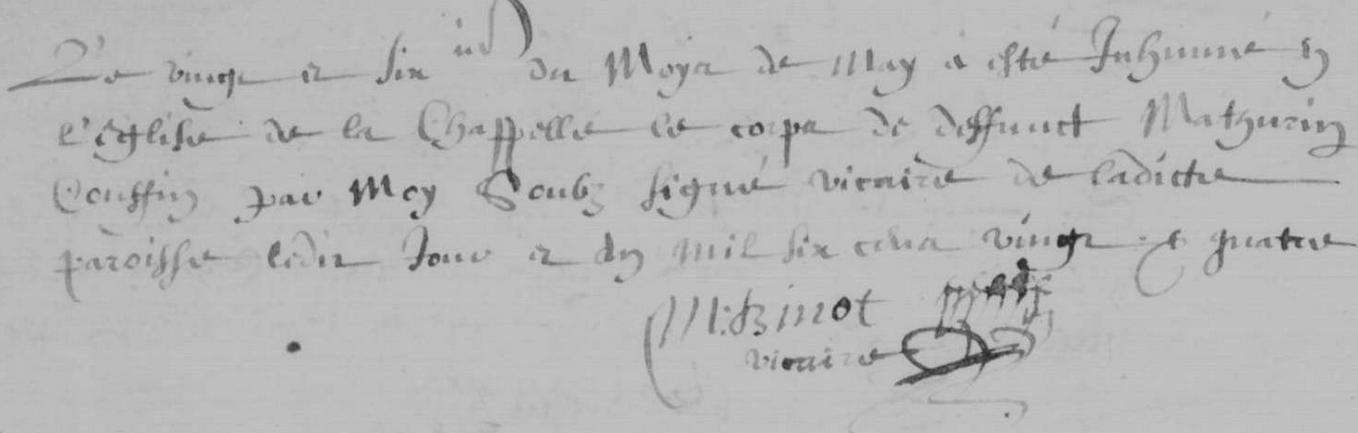 Le vingt et six du Moys de May a esté Inhumé en
l'église de la Chappelle le corps de deffunct Mathurin
Couffin par Moy Soubz signé vicaire de ladicte
paroisse ledit Jour et an mil six cens vingt et quatre
M. Binot
vicaire